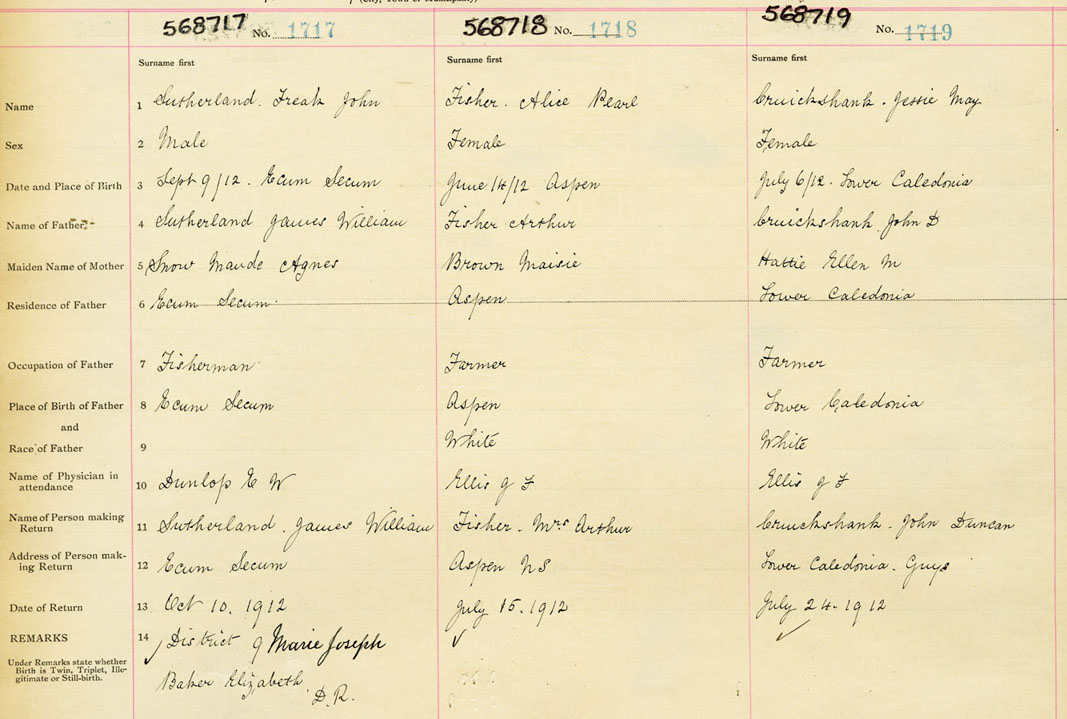 (City, Town or Municipality)
568717 No. 1717 568718 No. 1718 568719 No. 1719
Surname first Surname first Surname first
Name 1 Sutherland. Freak John Fisher. Alice Pearl Cruickshank. Jessie May
Sex 2 Male Female Female
Date and Place of Birth 3 Sept 9/12. Ecum Secum June 14/12 Aspen July 6/12. Lower Caledonia
Name of Father 4 Sutherland James William Fisher Arthur Cruickshank John D
Maiden Name of Mother 5 Snow Maude Agnes Brown Maisie Hattie Ellen M
Residence of Father 6 Ecum Secum Aspen Lower Caledonia
Occupation of Father 7 Fisherman Farmer Farmer
Place of Birth of Father 8 Ecum Secum Aspen Lower Caledonia
and
Race of Father 9 White White
Name of Physician in
attendance 10 Dunlop E W Ellis J F Ellis J F
Name of Person making
Return 11 Sutherland. James William Fisher. Mrs Arthur Cruickshank. John Duncan
Address of Person mak-
ing Return 12 Ecum Secum Aspen NS Lower Caledonia. Guys
Date of Return 13 Oct 10. 1912 July 15. 1912 July 24. 1912
REMARKS 14 District 9 Marie Joseph
Under Remarks state whether
Birth is Twin, Triplet, Ille-
gitimate or Still-birth.
Baker Elizabeth
D.R.